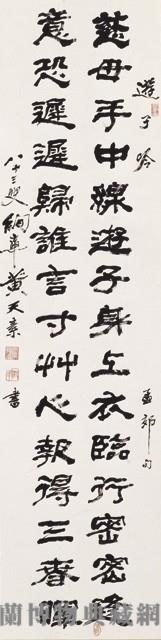 遊子吟
孟郊句
慈母手中線遊子身上衣臨行密密縫
意恐遲遲歸誰言寸艸心報得三春暉
八十三叟黃天素書
蘭博物典藏網